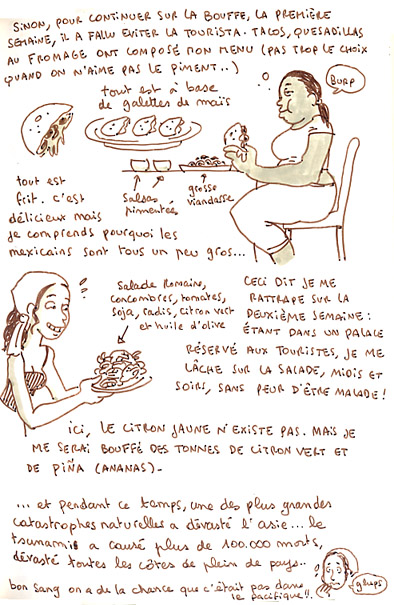 SINON, POUR CONTINUER SUR LA BOUFFE, LA PREMIÈRE
SEMAINE, IL A FALLU EVITER LA TOURISTA. TACOS, QUESADILLAS
AU FROMAGE ONT COMPOSÉ MON MENU (PAS TROP LE CHOIX
QUAND ON N'AIME PAS LE PIMENT..)
tout est à base
de galettes de maïs
BURP
salsas
pimentées
grosse
viandasse
tout est
frit. c'est
délicieux mais
je comprends pourquoi les
mexicains sont tous un peu gros...
Salade Romaine,
concombres, tomates,
soja, radis, citron vert
et huile d'olive
CECI DIT JE ME
RATTRAPE SUR LA
DEUXIÈME SEMAINE :
ÉTANT DANS UN PALACE
RÉSERVÉ AUX TOURISTES, JE ME
LÂCHE SUR LA SALADE, MIDIS ET
SOIRS, SANS PEUR D'ÊTRE MALADE !
ICI, LE CITRON JAUNE N'EXISTE PAS. MAIS JE
ME SERAI BOUFFÉ DES TONNES DE CITRON VERT ET
DE PIÑA (ANANAS)-
... et pendant ce temps, une des plus grandes
catastrophes naturelles a dévasté l'asie... le
tsunamis a causé plus de 100.000 morts,
dévasté toutes les côtes de plein de pays..
bon sang on a de la chance que c'était pas dans
le pacifique!!
glups